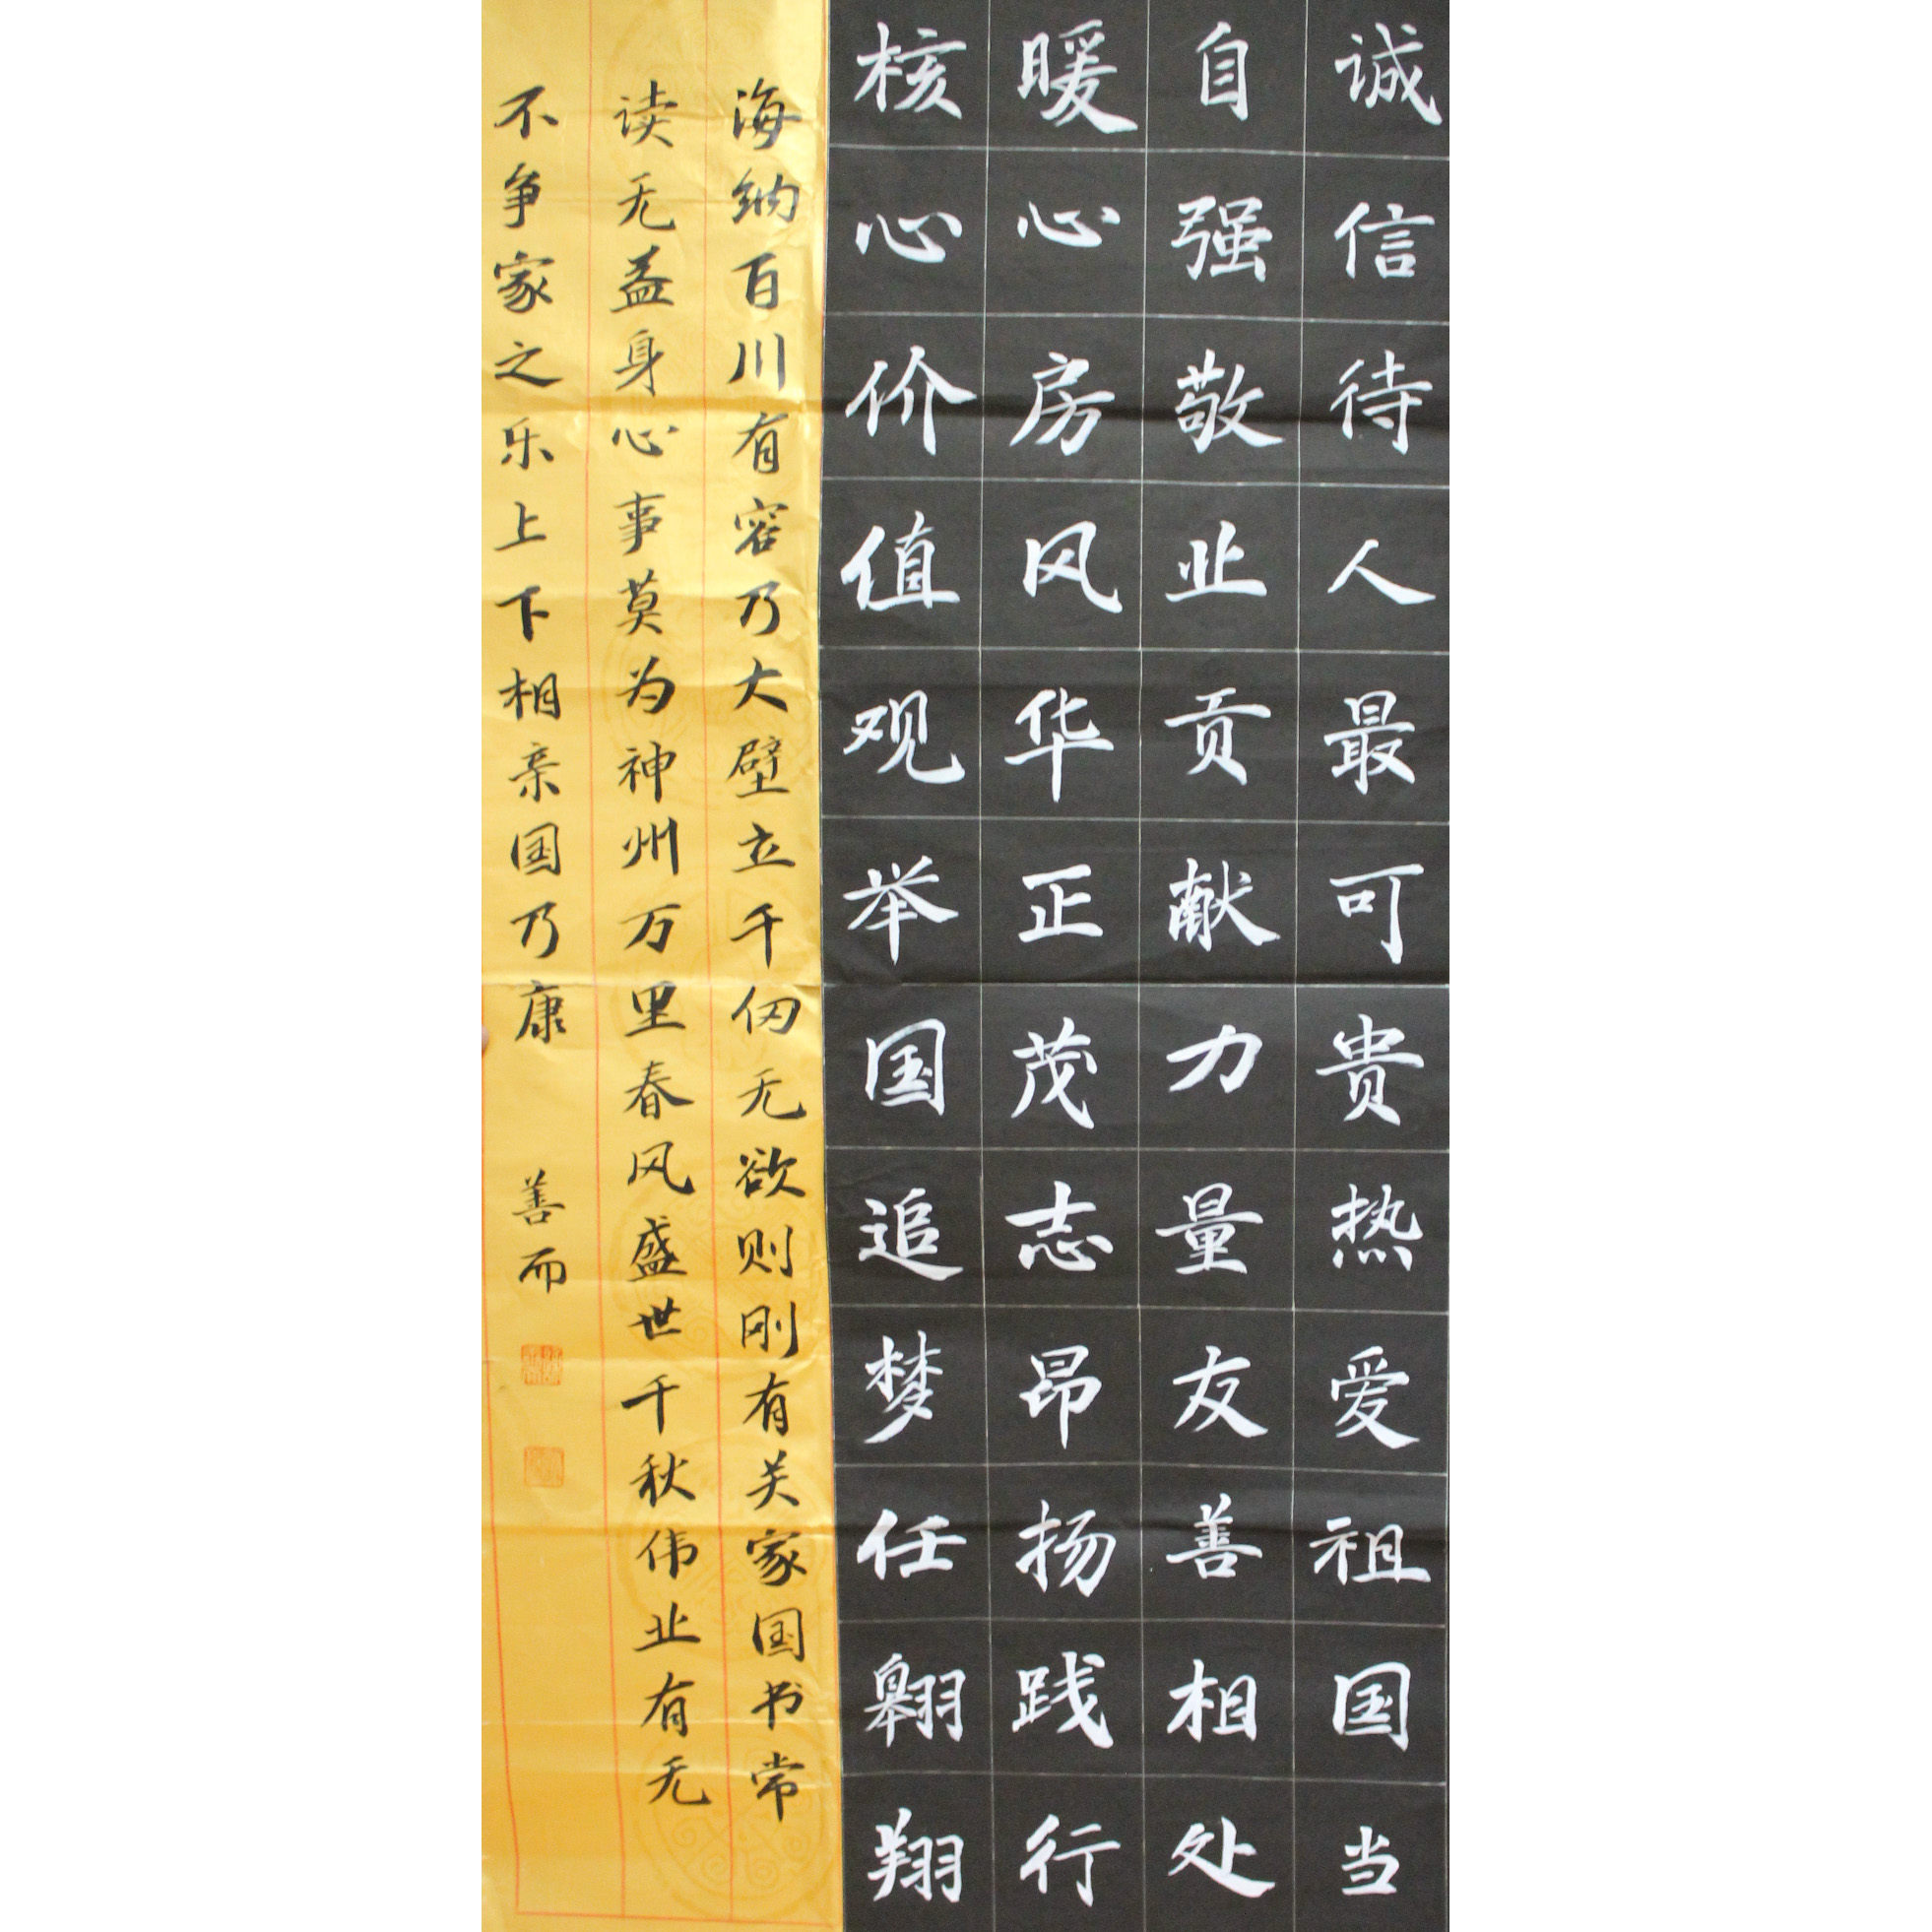 诚信待人最可贵热爱祖国当
自强敬业贡献力量友善相处
暖心房风华正茂志昂扬践行
核心价值观举国追梦任翱翔
海纳百川有容乃大壁立千仞无欲则刚有关家国书常
读无益身心事莫为神州万里春风盛世千秋伟业有无
不争家之乐上下相亲国乃康
善而